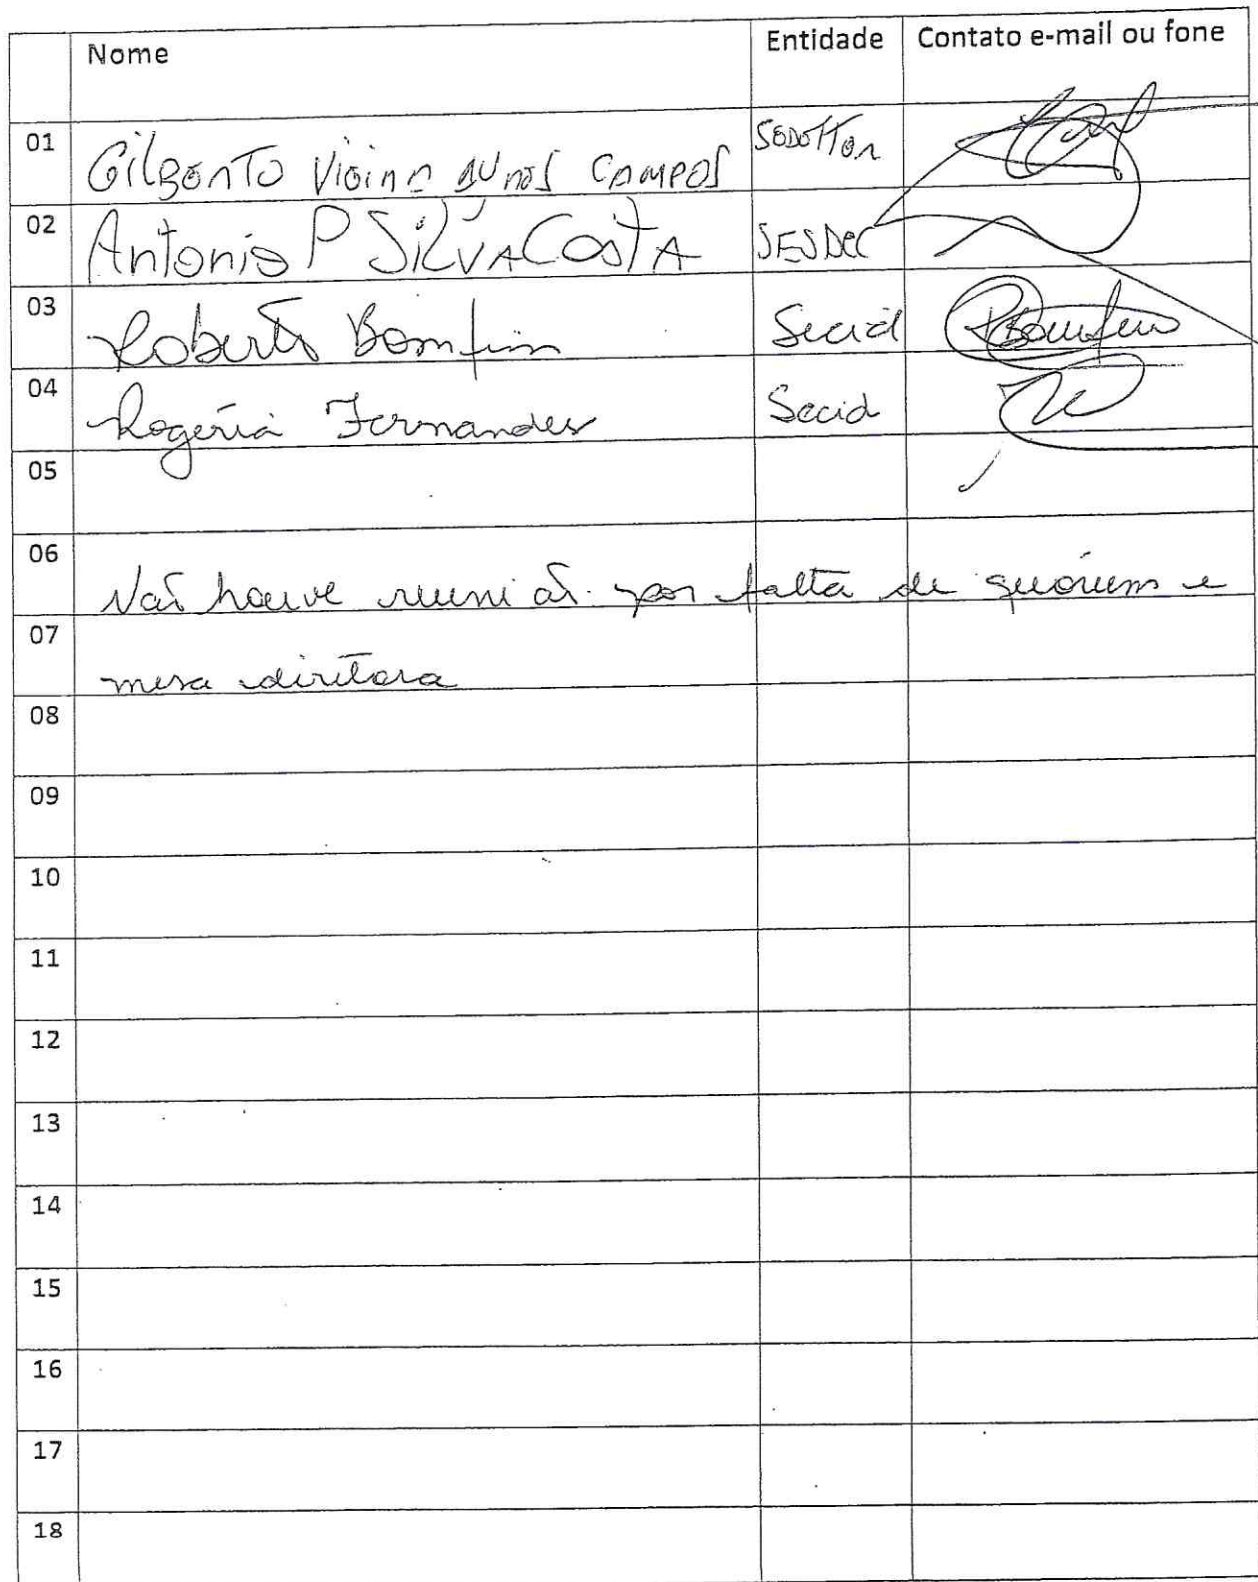 Nome Entidade Contato e-mail ou fone
01 Gilberto Campos
02 Antonio P Silva Costa SESDEC
03 Roberto Bomfim Secid
04 Rogéria Fernandes Secid
05
06 Não houve reunião por falta de quórum e
07 mesa diretora
08
09
10
11
12
13
14
15
16
17
18